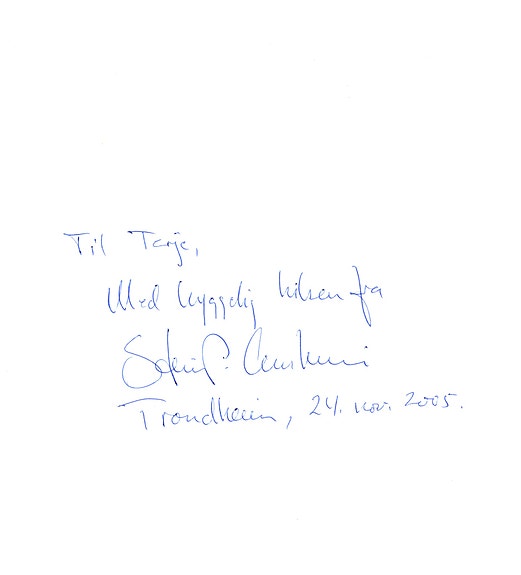 Til Terje,
Med hyggelig hilsen fra
Trondheim, 24. nov. 2005.